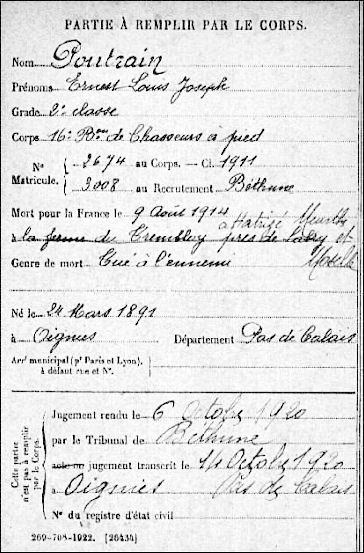 PARTIE À REMPLIR PAR LE CORPS.
Nom Poutrain
Prénoms Ernest Louis Joseph
Grade 2e classe
Corps 16e Bon de Chasseurs à pied
No 2674 au Corps. — Cl. 1911
Matricule. 3008 au Recrutement Béthune
Mort pour la France le 9 Août 1914
à Hatrizé Meurthe et Moselle
à la ferme du Tremblay près de Labry
Genre de mort Tué à l'ennemi
Né le 24 Mars 1891
à Oignies Département Pas de Calais
Arrt municipal (pr Paris et Lyon),
à défaut rue et No.
Cette partie n'est pas à remplir par le Corps.
Jugement rendu le 6 Octobre 1920
par le Tribunal de Béthune
acte ou jugement transcrit le 14 Octobre 1920
à Oignies Pas de Calais
No du registre d'état civil
269-708-1922. [26434]